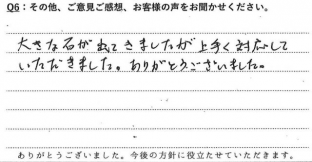 Q6：その他、ご意見ご感想、お客様の声をお聞かせください。
大きな石が出てきましたが上手く対応して
いただきました。ありがとうございました。
ありがとうございました。今後の方針に役立たせていただきます。